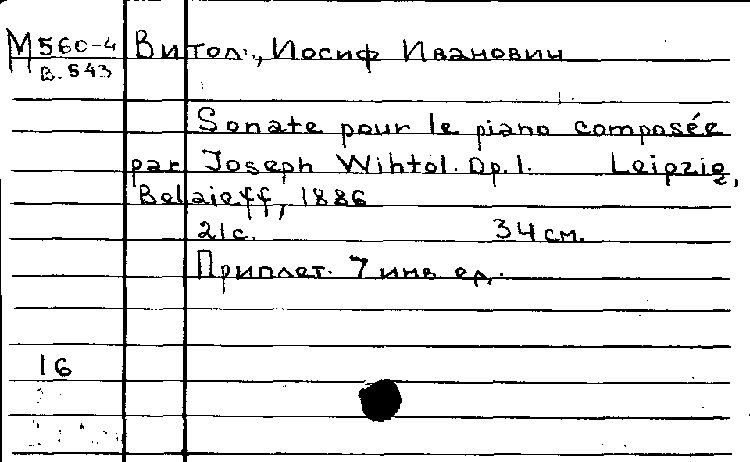 М 560-4 Витол., Иосиф Иванович
В. 543
Sonate pour le piano composée
par Joseph Wihtol. Op. 1. Leipzig,
Belaieff, 1886
21 с. 34 см.
Приплет. 7 инв. ед.
16